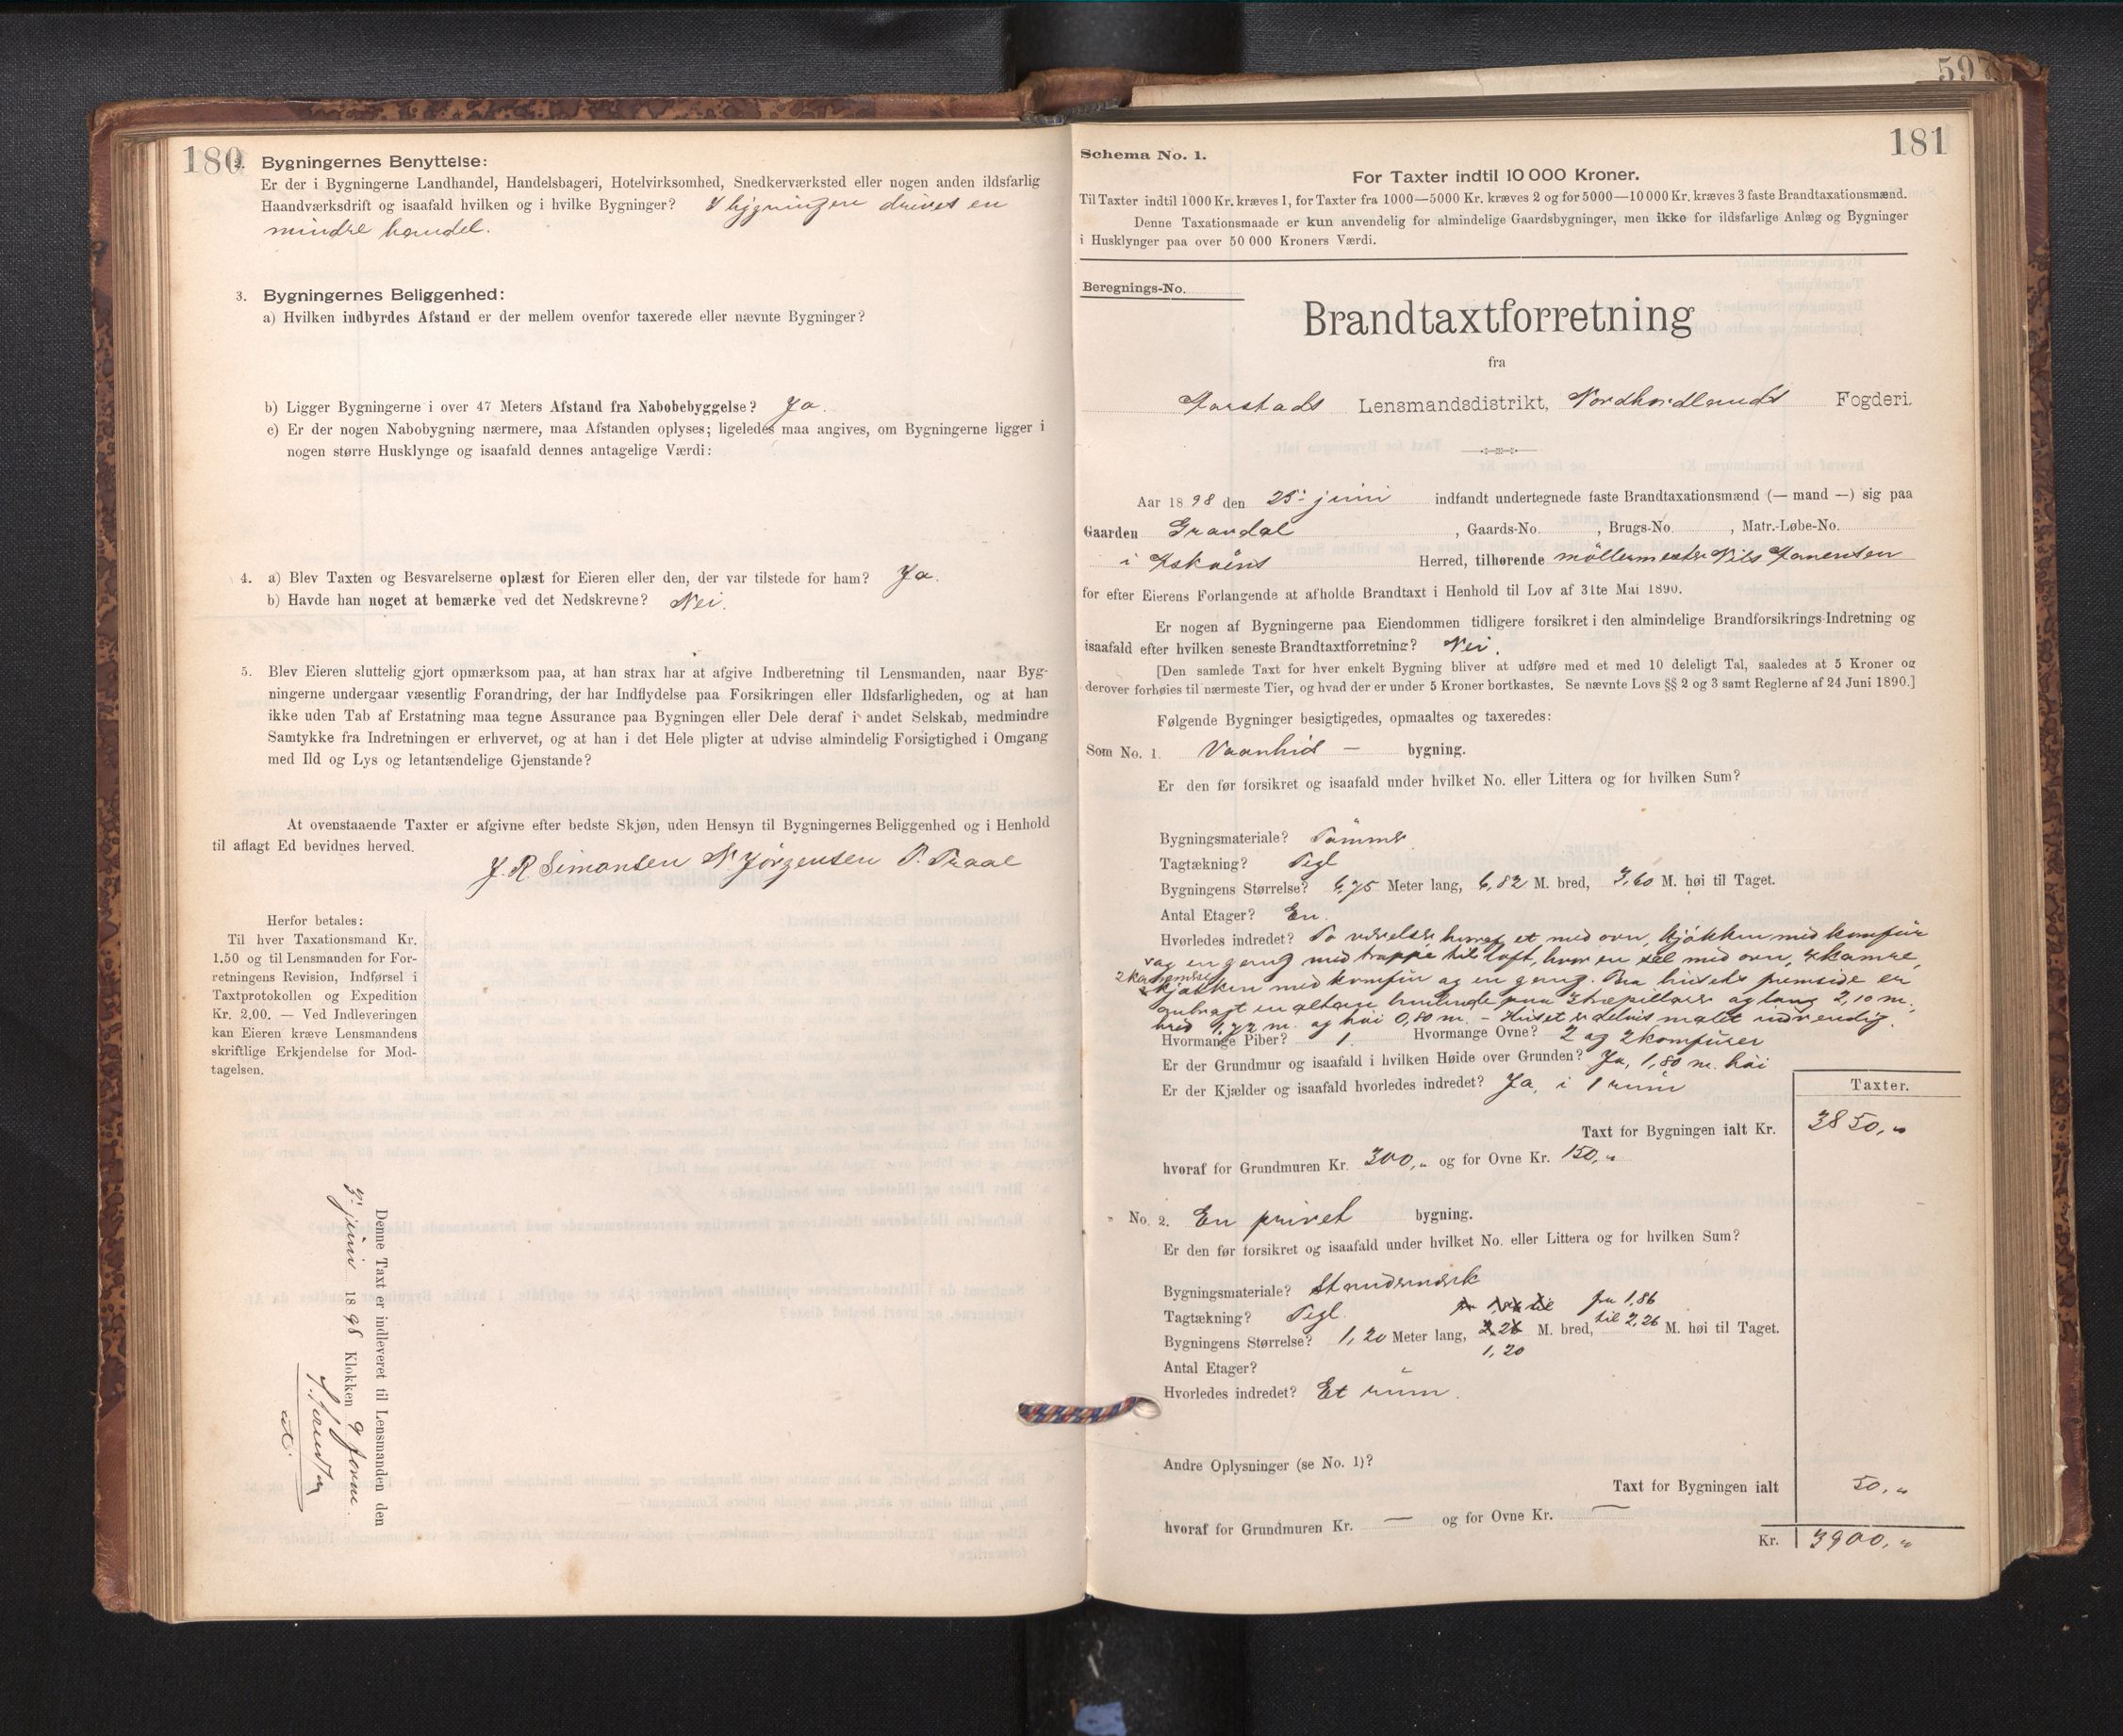 180
2. Bygningernes Benyttelse:
Er der i Bygningerne Landhandel, Handelsbageri, Hotelvirksomhed, Snedkerværksted eller nogen anden ildsfarlig
Haandværksdrift og isaafald hvilken og i hvilke Bygninger? I bygningen drives en
mindre handel.
3. Bygningernes Beliggenhed:
a) Hvilken indbyrdes Afstand er der mellem ovenfor taxerede eller nævnte Bygninger?
b) Ligger Bygningerne i over 47 Meters Afstand fra Nabobebyggelse? Ja.
c) Er der nogen Nabobygning nærmere, maa Afstanden oplyses; ligeledes maa angives, om Bygningerne ligger i
nogen større Husklynge og isaafald dennes antagelige Værdi:
4. a) Blev Taxten og Besvarelserne oplæst for Eieren eller den, der var tilstede for ham? Ja.
b) Havde han noget at bemærke ved det Nedskrevne? Nei.
5. Blev Eieren sluttelig gjort opmærksom paa, at han strax har at afgive Indberetning til Lensmanden, naar Byg-
ningerne undergaar væsentlig Forandring, der har Indflydelse paa Forsikringen eller Ildsfarligheden, og at han
ikke uden Tab af Erstatning maa tegne Assurance paa Bygningen eller Dele deraf i andet Selskab, medmindre
Samtykke fra Indretningen er erhvervet, og at han i det Hele pligter at udvise almindelig Forsigtighed i Omgang
med Ild og Lys og letantændelige Gjenstande?
At ovenstaaende Taxter er afgivne efter bedste Skjøn, uden Hensyn til Bygningernes Beliggenhed og i Henhold
til aflagt Ed bevidnes herved.
J. R. Simonsen N. Jørgensen P. Traae
Herfor betales:
Til hver Taxationsmand Kr.
1.50 og til Lensmanden for For-
retningens Revision, Indførsel i
Taxtprotokollen og Expedition
Kr. 2.00. — Ved Indleveringen
kan Eieren kræve Lensmandens
skriftlige Erkjendelse for Mod-
tagelsen.
Denne Taxt er indleveret til Lensmanden den
3' juni 1898 Klokken 9 Form.
597
181
Schema No. 1.
For Taxter indtil 10 000 Kroner.
Til Taxter indtil 1000 Kr. kræves 1, for Taxter fra 1000—5000 Kr. kræves 2 og for 5000—10 000 Kr. kræves 3 faste Brandtaxationsmænd.
Denne Taxationsmaade er kun anvendelig for almindelige Gaardsbygninger, men ikke for ildsfarlige Anlæg og Bygninger
i Husklynger paa over 50 000 Kroners Værdi.
Beregnings-No.
Brandtaxtforretning
fra
Aarstads Lensmandsdistrikt, Nordhordlands Fogderi.
Aar 1898 den 25' juni indfandt undertegnede faste Brandtaxationsmænd (— mand —) sig paa
Gaarden Gravdal, Gaards-No. , Brugs-No. , Matr.-Løbe-No.
i Askøens Herred, tilhørende møllermester Nils
for efter Eierens Forlangende at afholde Brandtaxt i Henhold til Lov af 31te Mai 1890.
Er nogen af Bygningerne paa Eiendommen tidligere forsikret i den almindelige Brandforsikrings-Indretning og
isaafald efter hvilken seneste Brandtaxtforretning? Nei.
[Den samlede Taxt for hver enkelt Bygning bliver at udføre med et med 10 deleligt Tal, saaledes at 5 Kroner og
derover forhøies til nærmeste Tier, og hvad der er under 5 Kroner bortkastes. Se nævnte Lovs §§ 2 og 3 samt Reglerne af 24 Juni 1890.]
Følgende Bygninger besigtigedes, opmaaltes og taxeredes:
Som No. 1. Vaanhus — bygning.
Er den før forsikret og isaafald under hvilket No. eller Littera og for hvilken Sum?
Bygningsmateriale? Tømmer
Tagtækning? Tegl
Bygningens Størrelse? 6,75 Meter lang, 6,82 M. bred, 3,60 M. høi til Taget.
Antal Etager? En.
Hvorledes indredet? To værelser, hvoraf et med ovn, kjøkken med komfür
og en gang med trappe til loft, hvor en sal med ovn, kamre,
kjøkken med komfür og en gang. Paa husets fremside er
anbragt en altane hvilende paa 3 træpillarer og lang 2,10 m.,
bred 1,72 m. og høi 0,80 m. - Huset er delvis malet indvendig.
Hvormange Piber? 1. Hvormange Ovne? 2 og 2 komfürer
Er der Grundmur og isaafald i hvilken Høide over Grunden? Ja, 1,80 m. høi
Er der Kjælder og isaafald hvorledes indredet? Ja, i 1 rum
Taxter.
Taxt for Bygningen ialt Kr. 3850,"
hvoraf for Grundmuren Kr. 300," og for Ovne Kr. 150,"
" No. 2. En privet bygning.
Er den før forsikret og isaafald under hvilket No. eller Littera og for hvilken Sum?
Bygningsmateriale? Standerværk
Tagtækning? Tegl. fra 1,86
Bygningens Størrelse? 1,20 Meter lang, 2,26 M. bred, til 2,26 M. høi til Taget.
1,20
Antal Etager?
Hvorledes indredet? Et rum.
Andre Oplysninger (se No. 1)?
Taxt for Bygningen ialt 50,"
hvoraf for Grundmuren Kr. — og for Ovne Kr. —
Kr. 3900,"